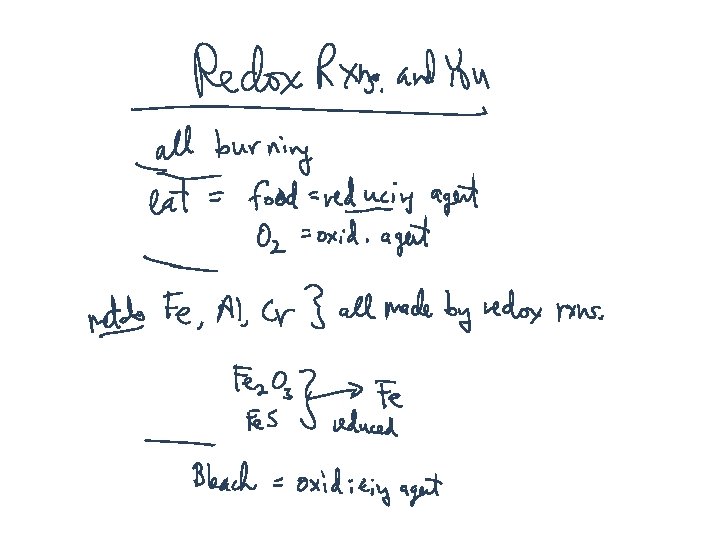 Redox Rxns. and You
all burning
eat = food = reducing agent
O2 = oxid. agent
metals Fe, Al, Cr } all made by redox rxns.
Fe2O3 } → Fe
FeS reduced
Bleach = oxidizing agent